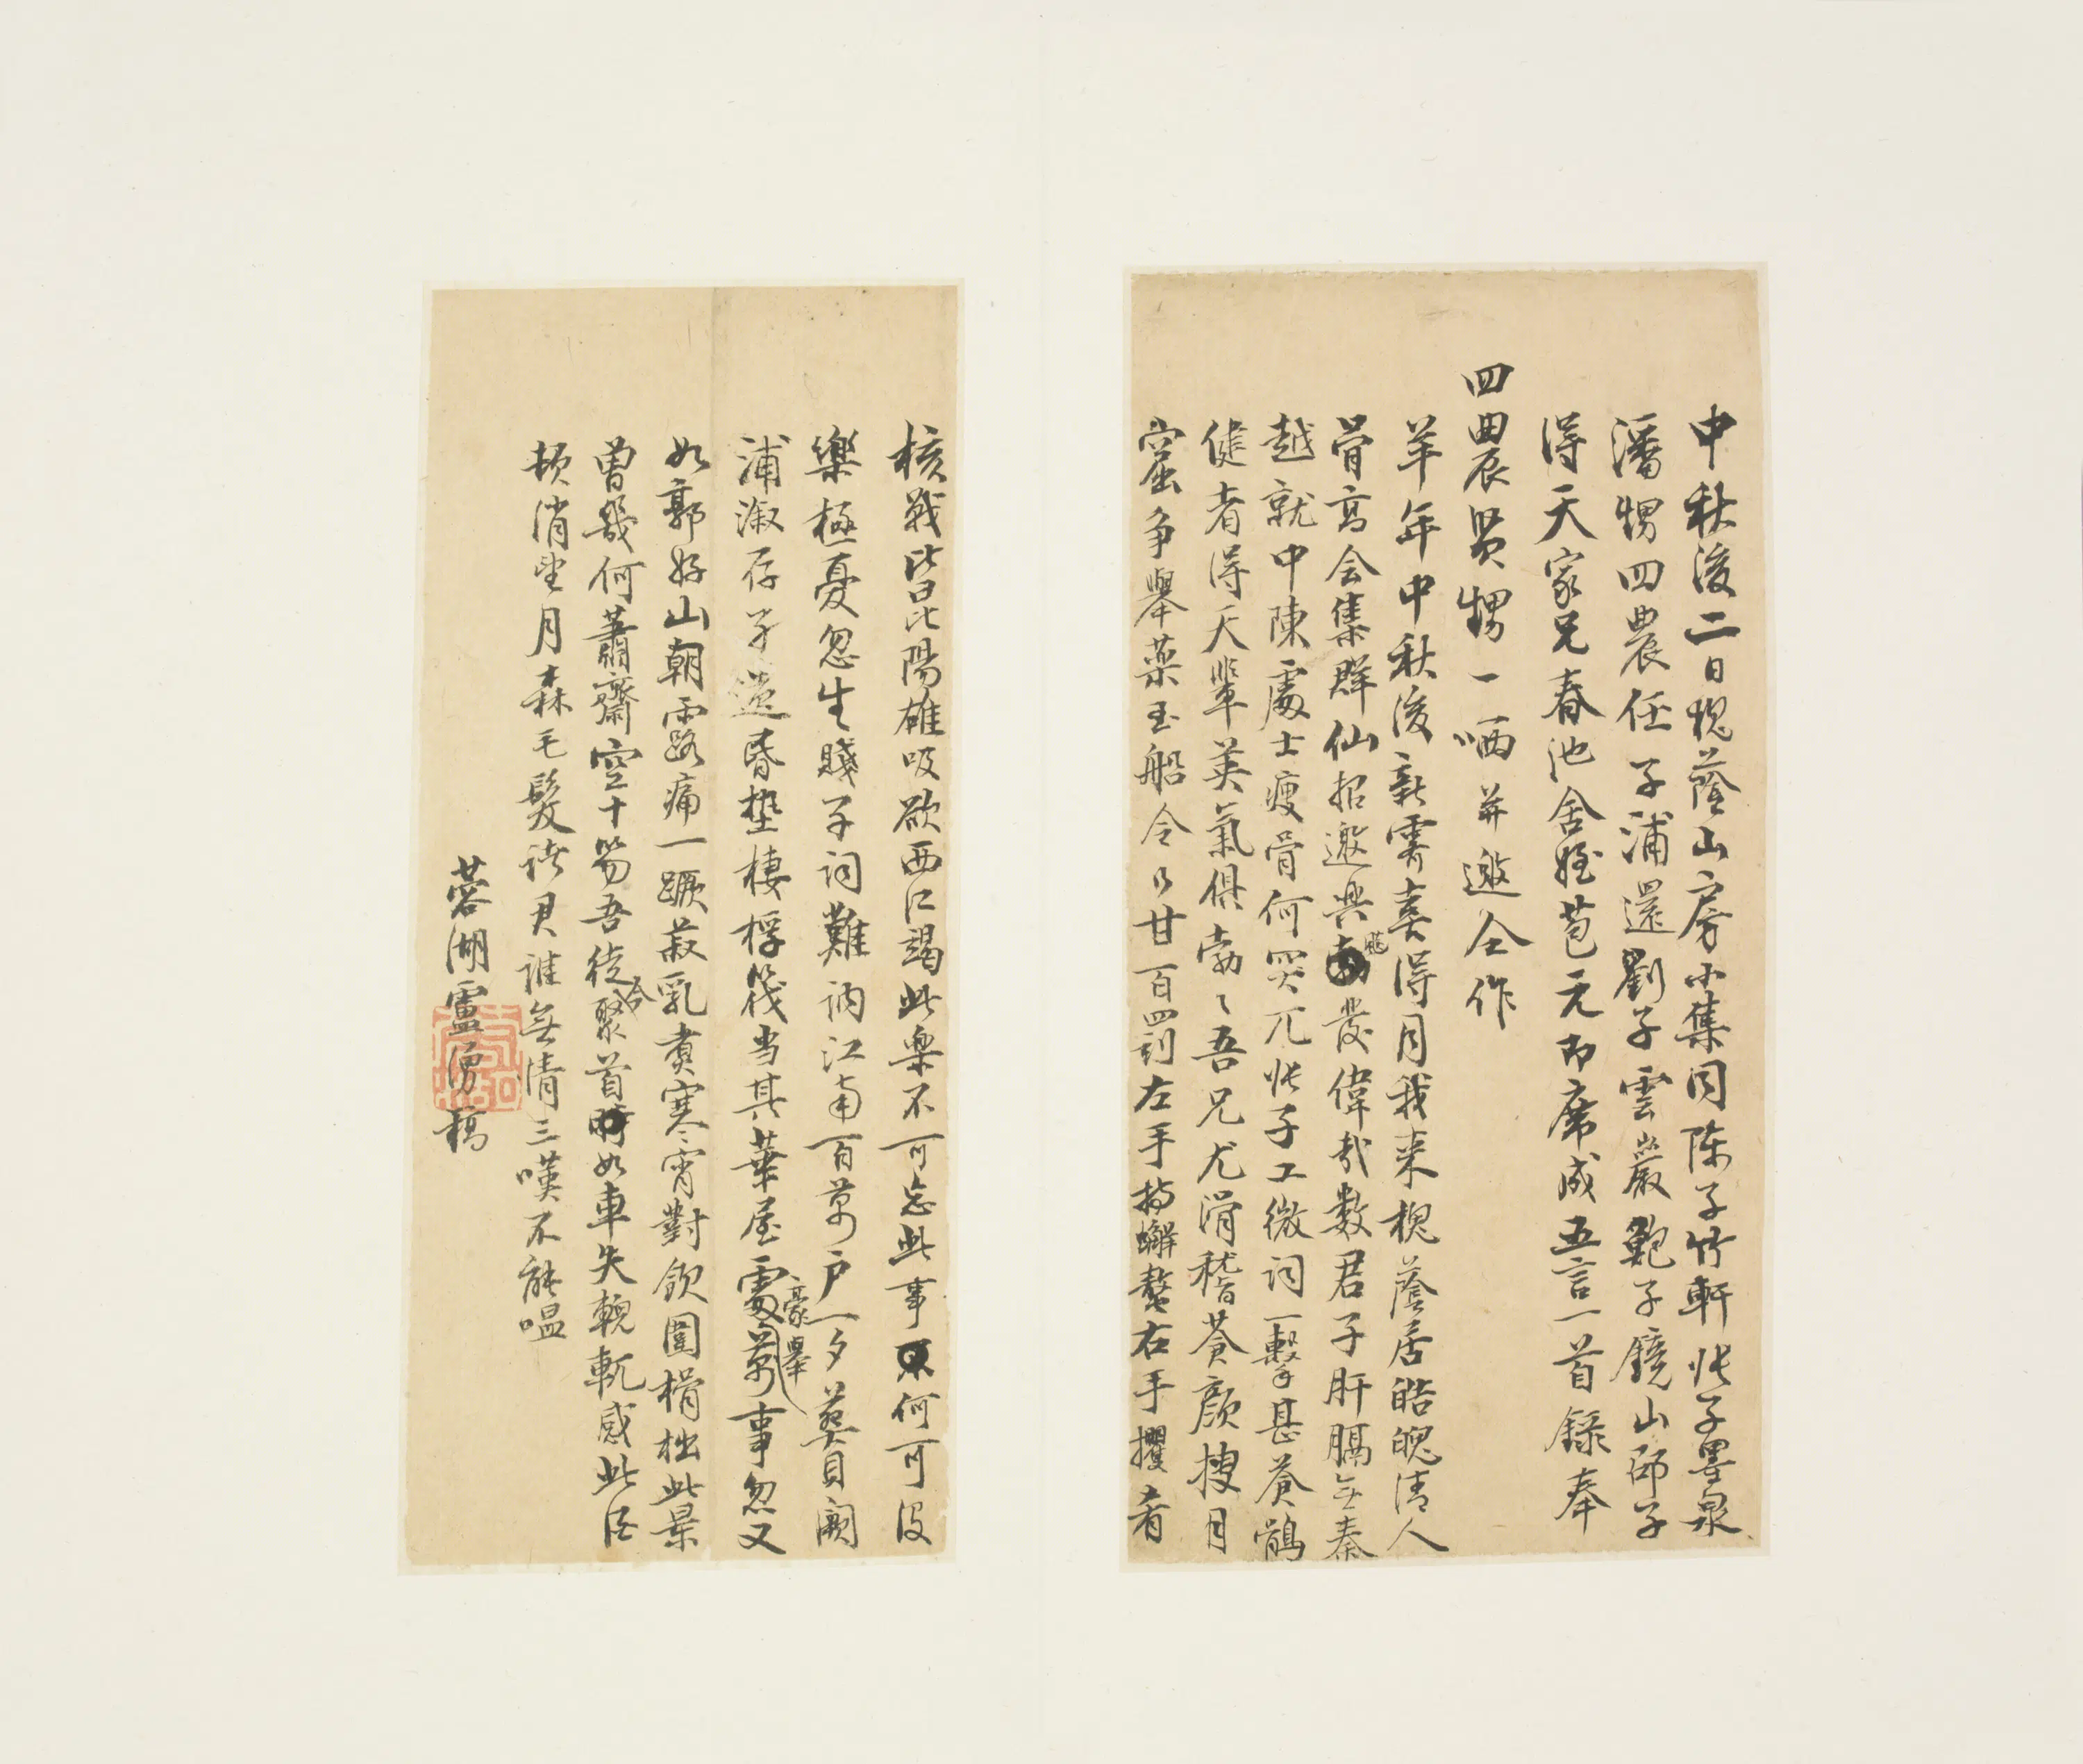 中秋後二日槐蔭山房小集同陈子竹軒张子墨泉
潘甥四農任子浦還劉子雲巖鮑子鏡山邵子
得天家兄春池舍姪苞元即席成五言一首錄奉
四農賢甥一哂并邀仝作
羊年中秋後新霽喜得月我来槐蔭居皓魄清人
骨高会集群仙招邀興飈發偉哉數君子肝膈無秦
越就中陳處士瘦骨何突兀张子工微词一擊甚蒼鶻
健者得天輩英氣俱勃〻吾兄尤滑稽蒼顏搜月
窟争舉葉玉船令乃甘百罰左手持蠏螯右手攫肴
核戰皆昆陽雄吸欲西江竭此樂不可忘此事何可没
樂極憂忽生賤子词難訥江南百萬户一夕葬貝闕
浦溆存孑遗昏墊棲桴筏当其華屋處豪舉事忽又
如郭好山朝露痛一蹶菽乳煮寒宵對飲圍榾柮此景
曾幾何蕭齋空十笏吾徒合聚首如車失輗軏感此酒
頓消望月森毛髮诸君誰無情三嘆不能嗢
蓉湖盧湧稿